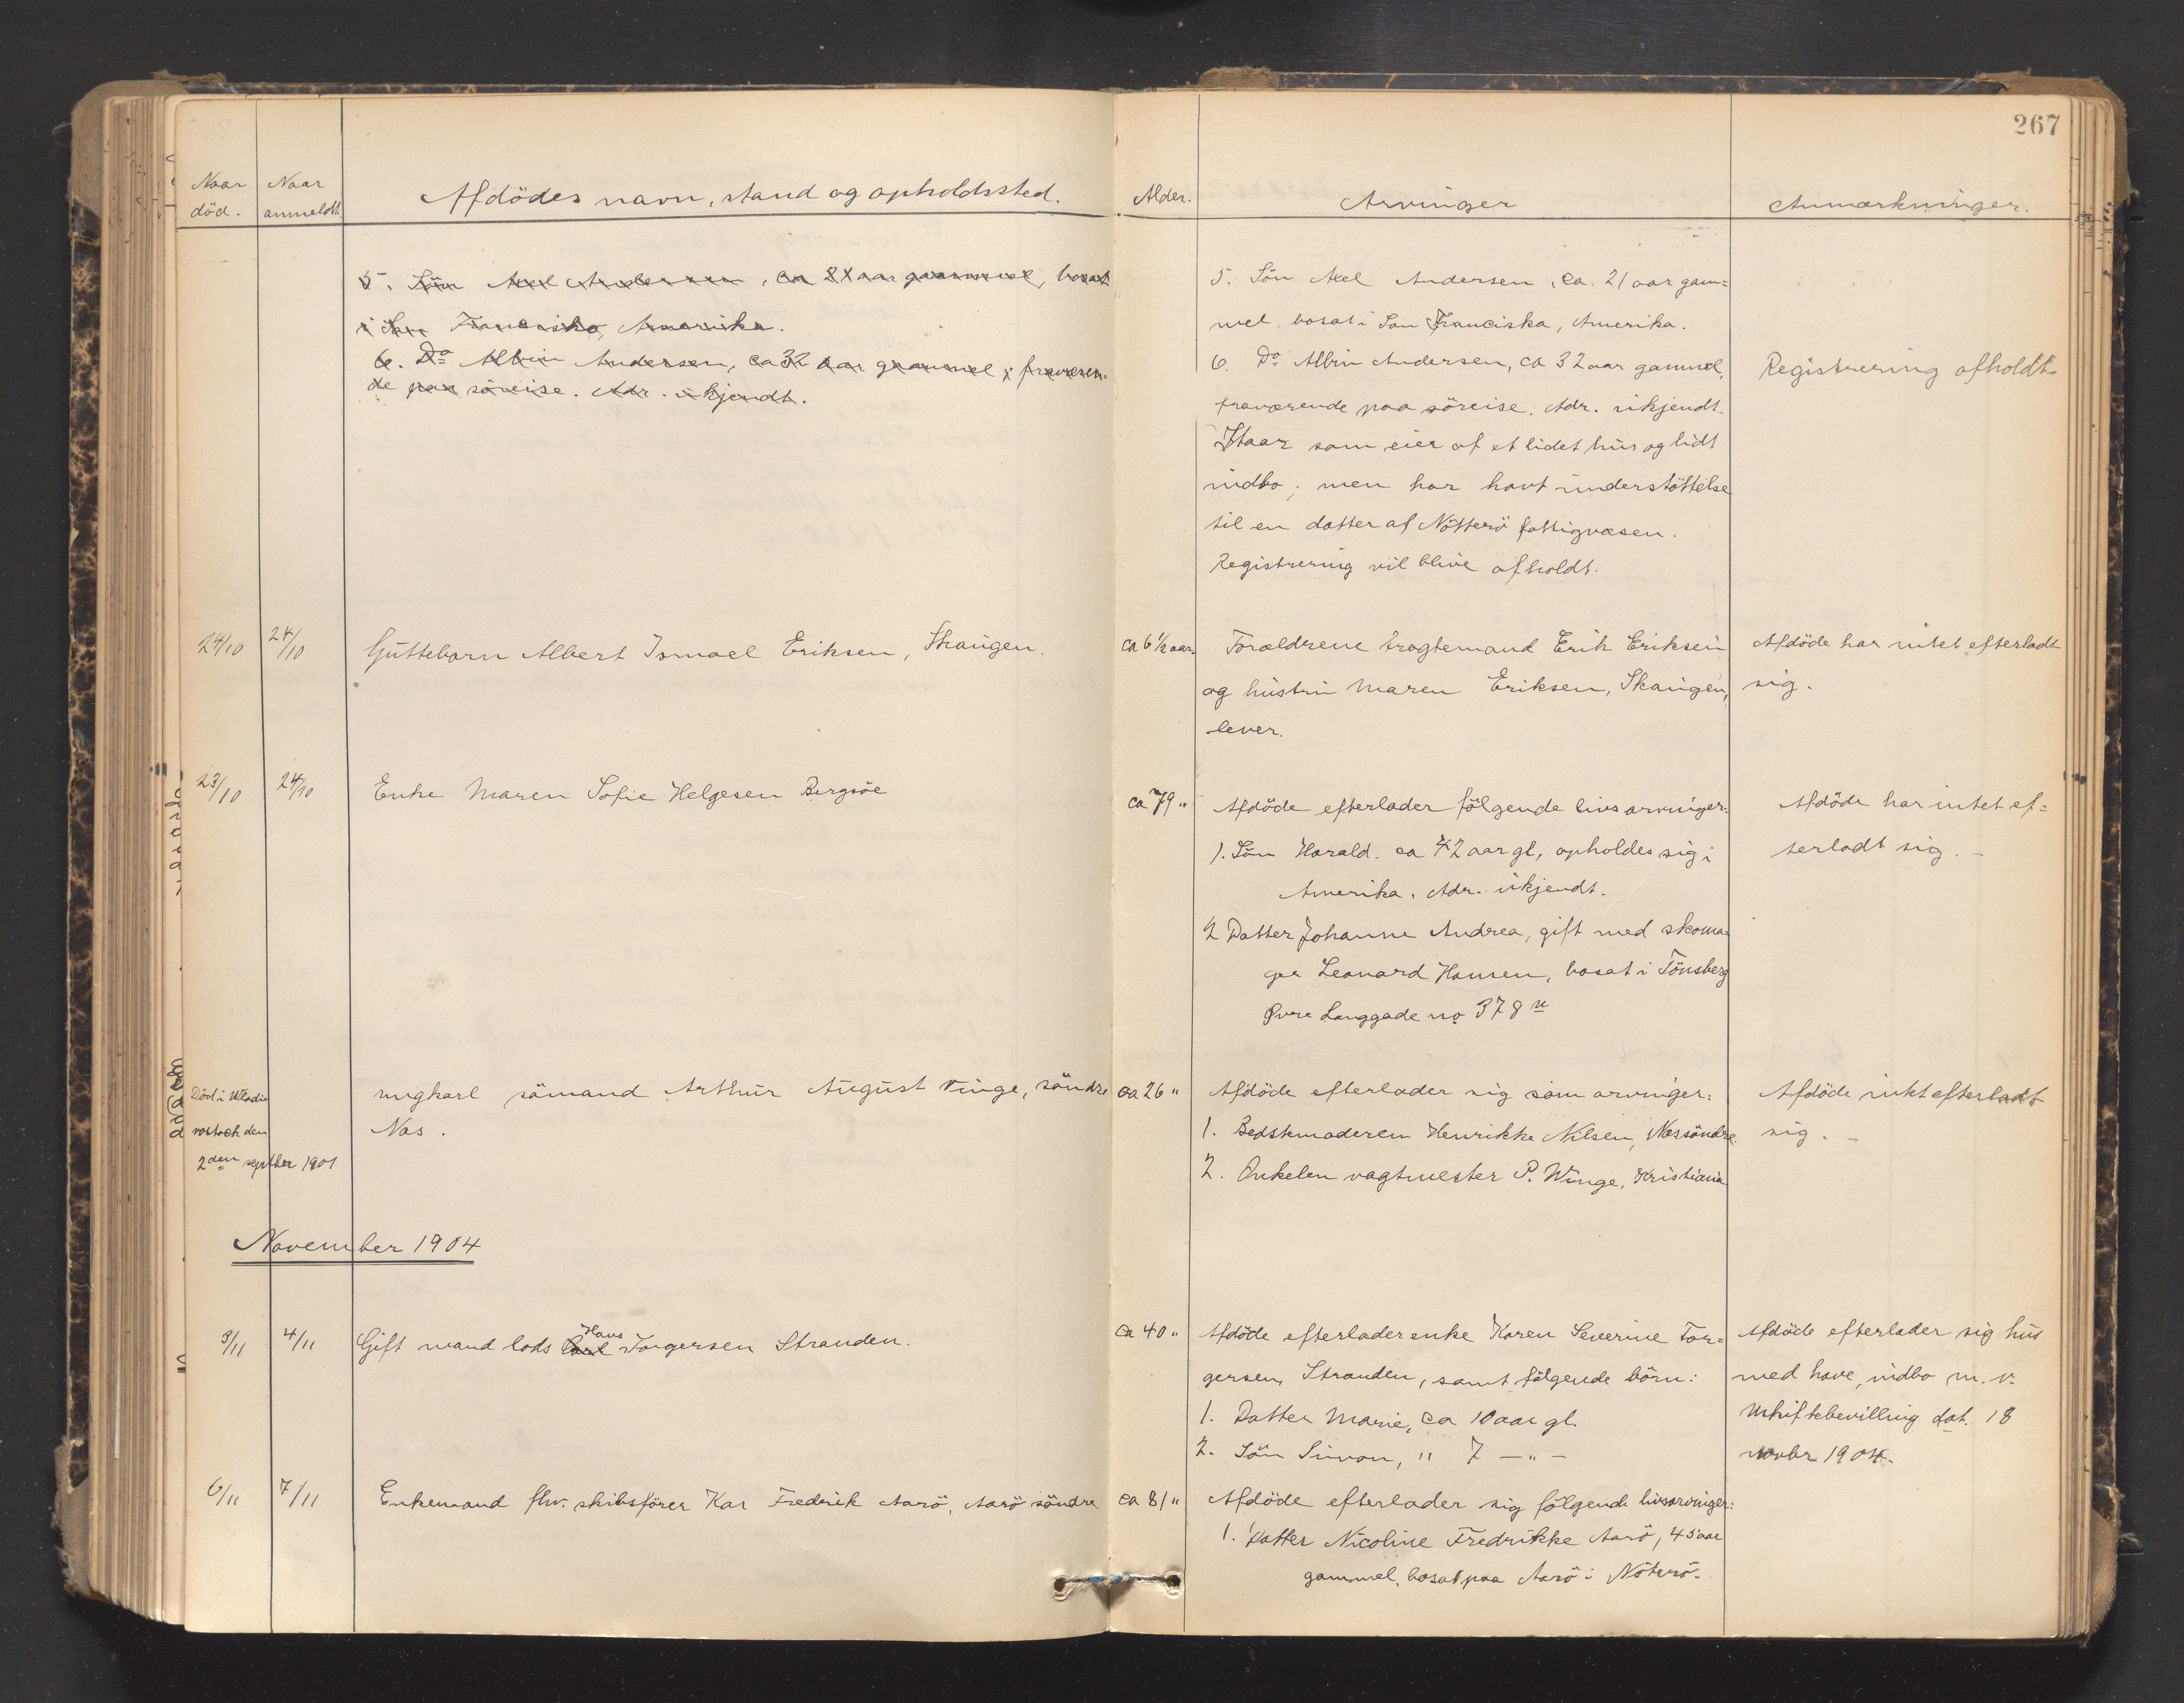 267
Naar död.
Naar anmeldt.
Afdödes navn, stand og opholdssted.
Alder.
Arvinger
Anmærkninger.
5. Sön Axel Andersen, ca 21 aar gammel, bosat
i San Franciska, Amerika.
6. Do Albin Andersen, ca 32 aar gammel, fraværen-
de paa söreise. Adr. ukjendt.
5. Sön Axel Andersen, ca. 21 aar gam=
mel, bosat i San Franciska, Amerika.
6. Do Albin Andersen, ca 32 aar gammel,
fraværende paa söreise. Adr. ukjendt.
Staar som eier af et lidet hus og lidt
indbo; men har havt understöttelse
til en datter af Nötterö fattigvæsen.
Registrering vil blive afholdt.
Registrering afholdt.
24/10
24/10
Guttebarn Albert Ismael Eriksen, Skaugen.
ca 6 1/2 aar.
Forældrene fragtemand Erik Eriksen
og hustru Maren Eriksen, Skaugen,
lever.
Afdöde har intet efterladt
sig.
23/10
24/10
Enke Maren Sofie Helgesen Bergsöe
ca 79 "
Afdöde efterlader fölgende livsarvinger:
1. Sön Harald. ca 42 aar gl, opholdes sig i
Amerika. Adr. ukjendt.
2 Datter Johanne Andrea, gift med skoma=
ger Leonard Hansen, bosat i Tönsberg
Øvre Langgade no 378
Afdöde har intet ef=
terladt sig. -
Död i Wladi
vostock den
2den septber 1901
ungkarl sömand Arthur August Vinge, söndre
Nes.
ca 26 "
Afdöde efterlader sig som arvinger:
1. Bedstemoderen Henrikke Nilsen, Nessöndre.
2. Onkelen vagtmester P. Winge, Kristiania
Afdöde intet efterladt
sig. -
November 1904
3/11
4/11
Gift mand lods Carl Hans Torgersen Stranden.
ca 40 "
Afdöde efterlader enke Karen Severine Tor=
gersen, Stranden, samt fölgende börn:
1. Datter Marie, ca 10 aar gl.
2. Sön Simon, " 7 - " -
Afdöde efterlader sig hus
med have, indbo m.v.
Uskiftebevilling dat. 18
novbr 1904.
6/11
7/11
Enkemand fhv. skibsförer Kar Fredrik Aarö, Aarö söndre
ca 81 "
Afdöde efterlader sig fölgende livsarvinger:
1. Datter Nicoline Fredrikke Aarö, 45 aar
gammel, bosat paa Aarö i Nöterö.